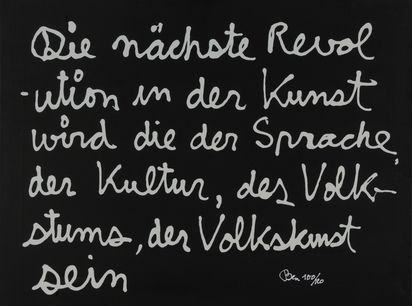 Die nächste Revol
-ution in der Kunst
wird die der Sprache,
der Kultur, des Volk-
stums, der Volkskunst
sein
Ben 100/120